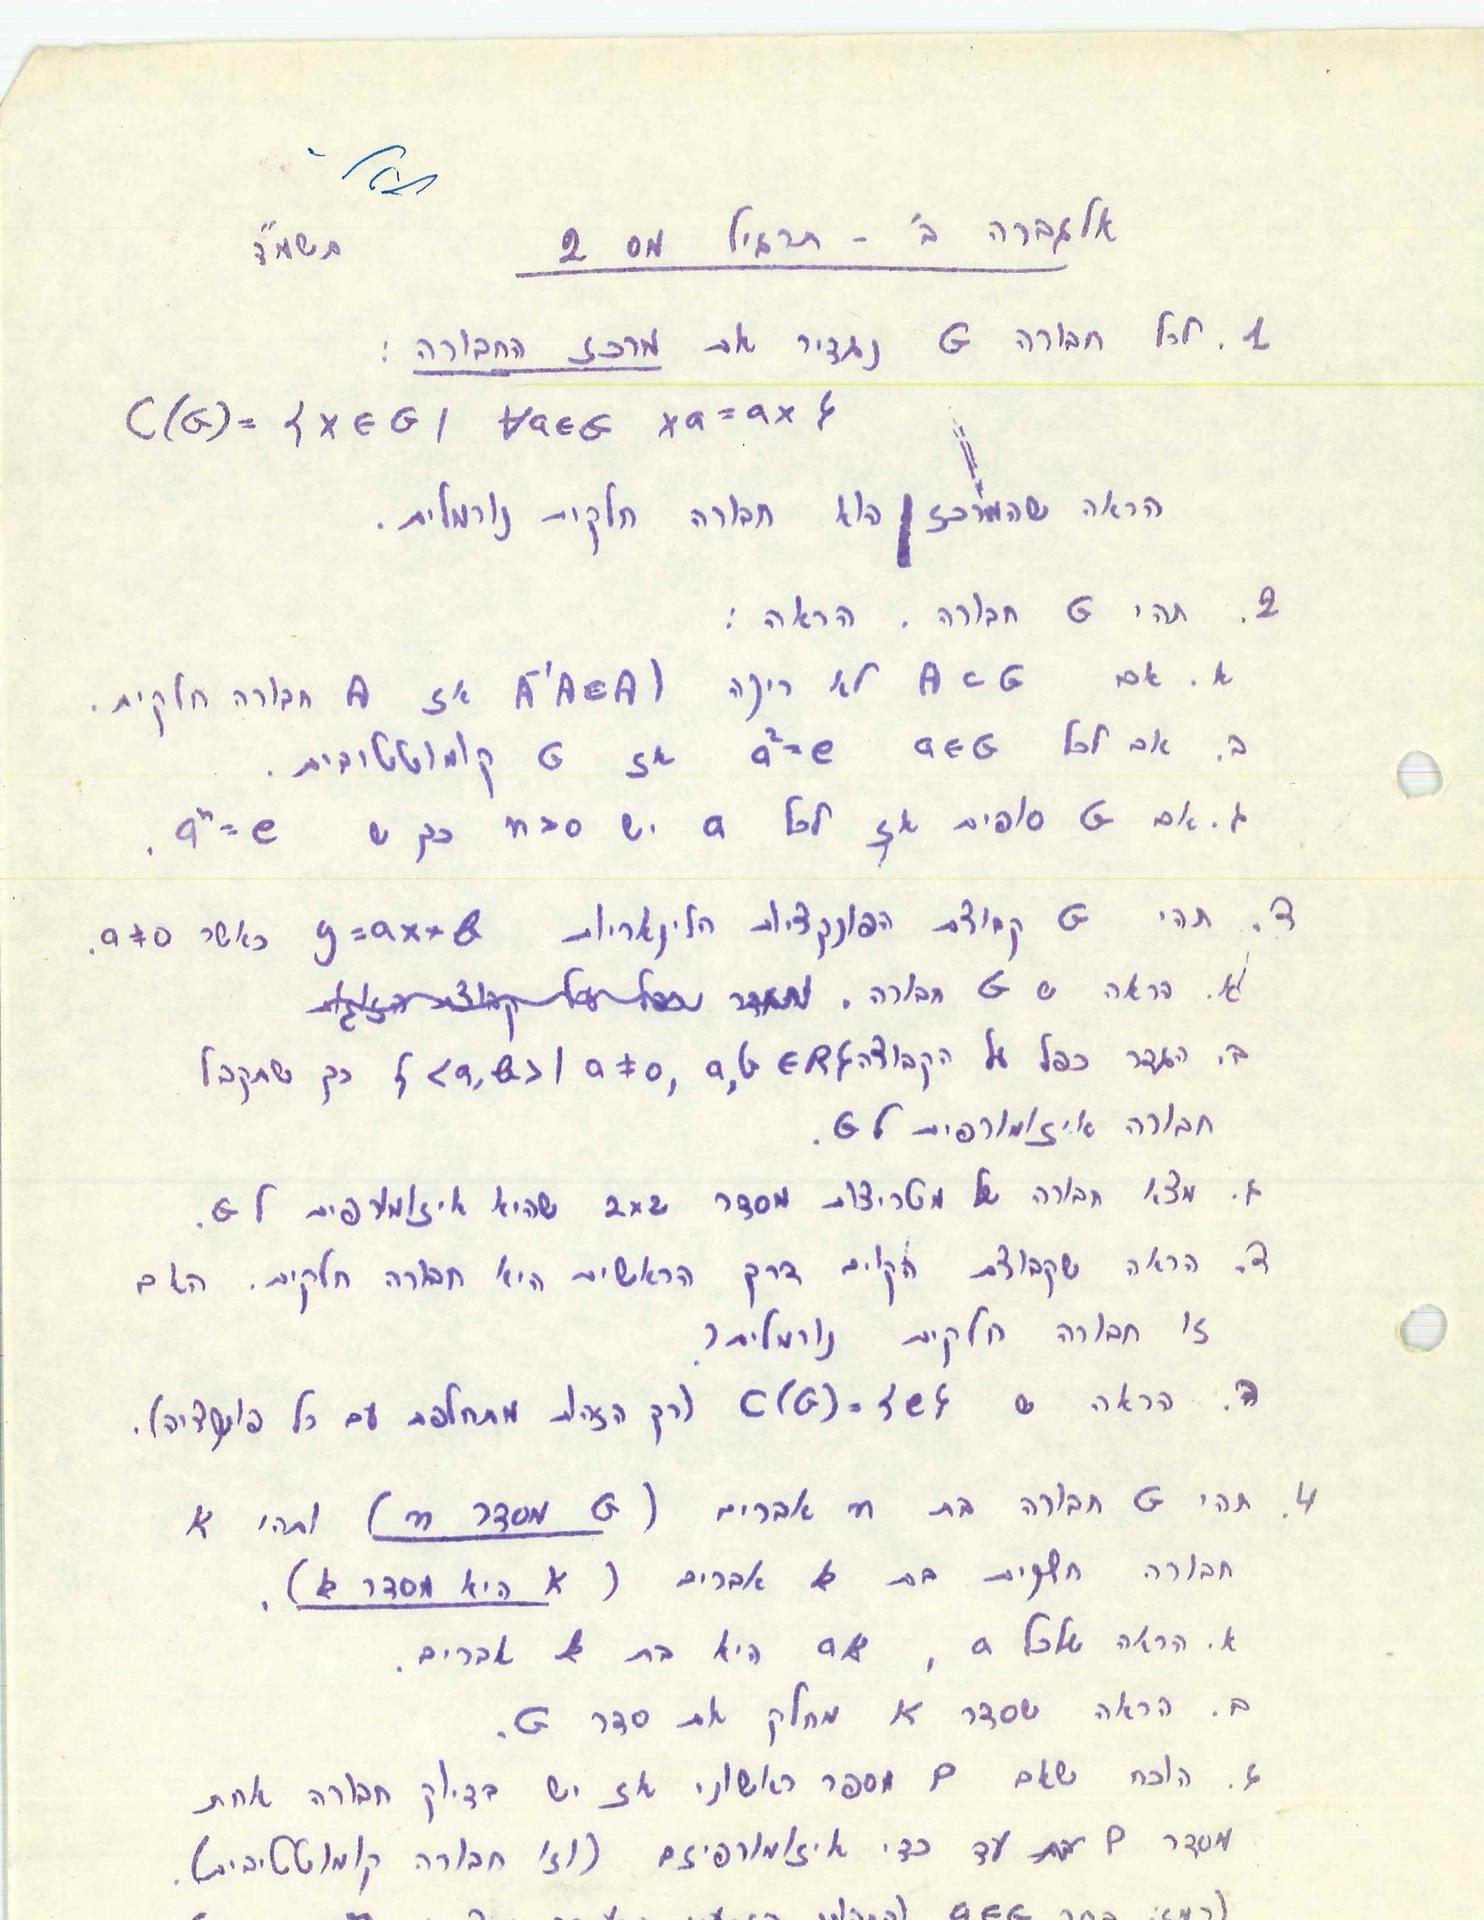 אלגברה ב' - תרגיל מס 2 תשמ"ד
1. לכל חבורה G נגדיר את מרכז החבורה :
C(G)= {x∈G | ∀a∈G xa=ax}
הראה שהמרכז הוא חבורה חלקית נורמלית.
2. תהי G חבורה. הראה :
א. אם A⊂G לא ריקה ו A⁻¹A⊂A אז A חבורה חלקית.
ב. אם לכל a∈G a²=e אז G קומוטטיבית.
ג. אם G סופית אז לכל a יש n>0 כך ש aⁿ=e.
3. תהי G קבוצת הפונקציות הלינאריות y=ax+b כאשר a≠0.
א. הראה ש G חבורה.
ב. הגדר כפל על הקבוצה {<a,b> | a≠0, a,b∈R} כך שתקבל
חבורה איזומורפית ל G.
ג. מצא חבורה של מטריצות מסדר 2x2 שהיא איזומורפית ל G.
ד. הראה שקבוצת הקוים דרך הראשית היא חבורה חלקית. האם
זו חבורה חלקית נורמלית?
ה. הראה ש C(G)={e} (רק הזהות מתחלפת עם כל פונקציה).
4. תהי G חבורה בת n אברים (G מסדר n) ותהי K
חבורה חלקית בת k אברים (K היא מסדר k).
א. הראה שלכל a, aK היא בת k אברים.
ב. הראה שסדר K מחלק את סדר G.
ג. הוכח שאם P מספר ראשוני אז יש בדיוק חבורה אחת
מסדר P עד כדי איזומורפיזם (וזו חבורה קומוטטיבית).